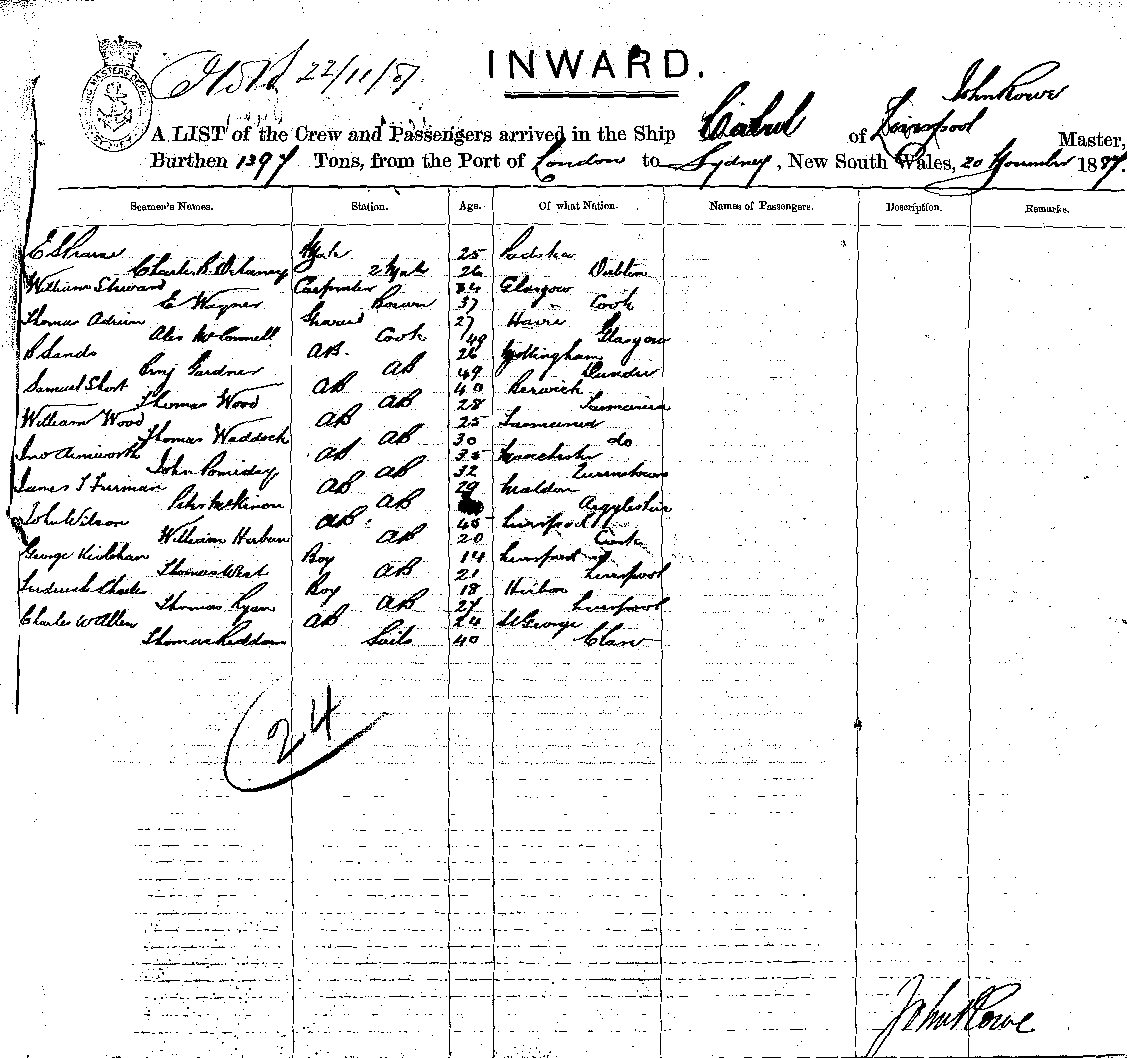 22/11/87
INWARD.
John Rowe
A LIST of the Crew and Passengers arrived in the Ship Cabul of Liverpool Master,
Burthen 1397 Tons, from the Port of London to Sydney, New South Wales, 20 November 1887.
Seamen's Names. Station. Age. Of what Nation. Names of Passengers. Description. Remarks.
Mate 25
Charles R. Delaney 2 Mate 26 Dublin
William Steward Carpenter 34 Glasgow
E Wagner 37 Cook
Thomas Adrian 27 Havre
Alex McConnell Cook 49 Glasgow
B Sands AB. 26 Nottingham
Benj Gardner AB 49 Dundee
Samuel Short AB 40 Berwick
Thomas Wood AB 28 Tasmania
William Wood AB 25 Tasmania
Thomas Waddock AB 30 do
Jno Ainsworth AB 35 Manchester
John AB 32 Queenstown
James T Furman AB 29 Maldon
Peter McKinon AB Argyleshire
John Wilson AB. 45 Liverpool
William AB 20 Cork
George Boy 14 Liverpool
Thomas West AB 21 Liverpool
Frederick Charles Boy 18
Thomas Ryan AB 27 Liverpool
Charles W Allen AB 24 St George
Thomas Reddan Sails 40 Clare
24
John Rowe